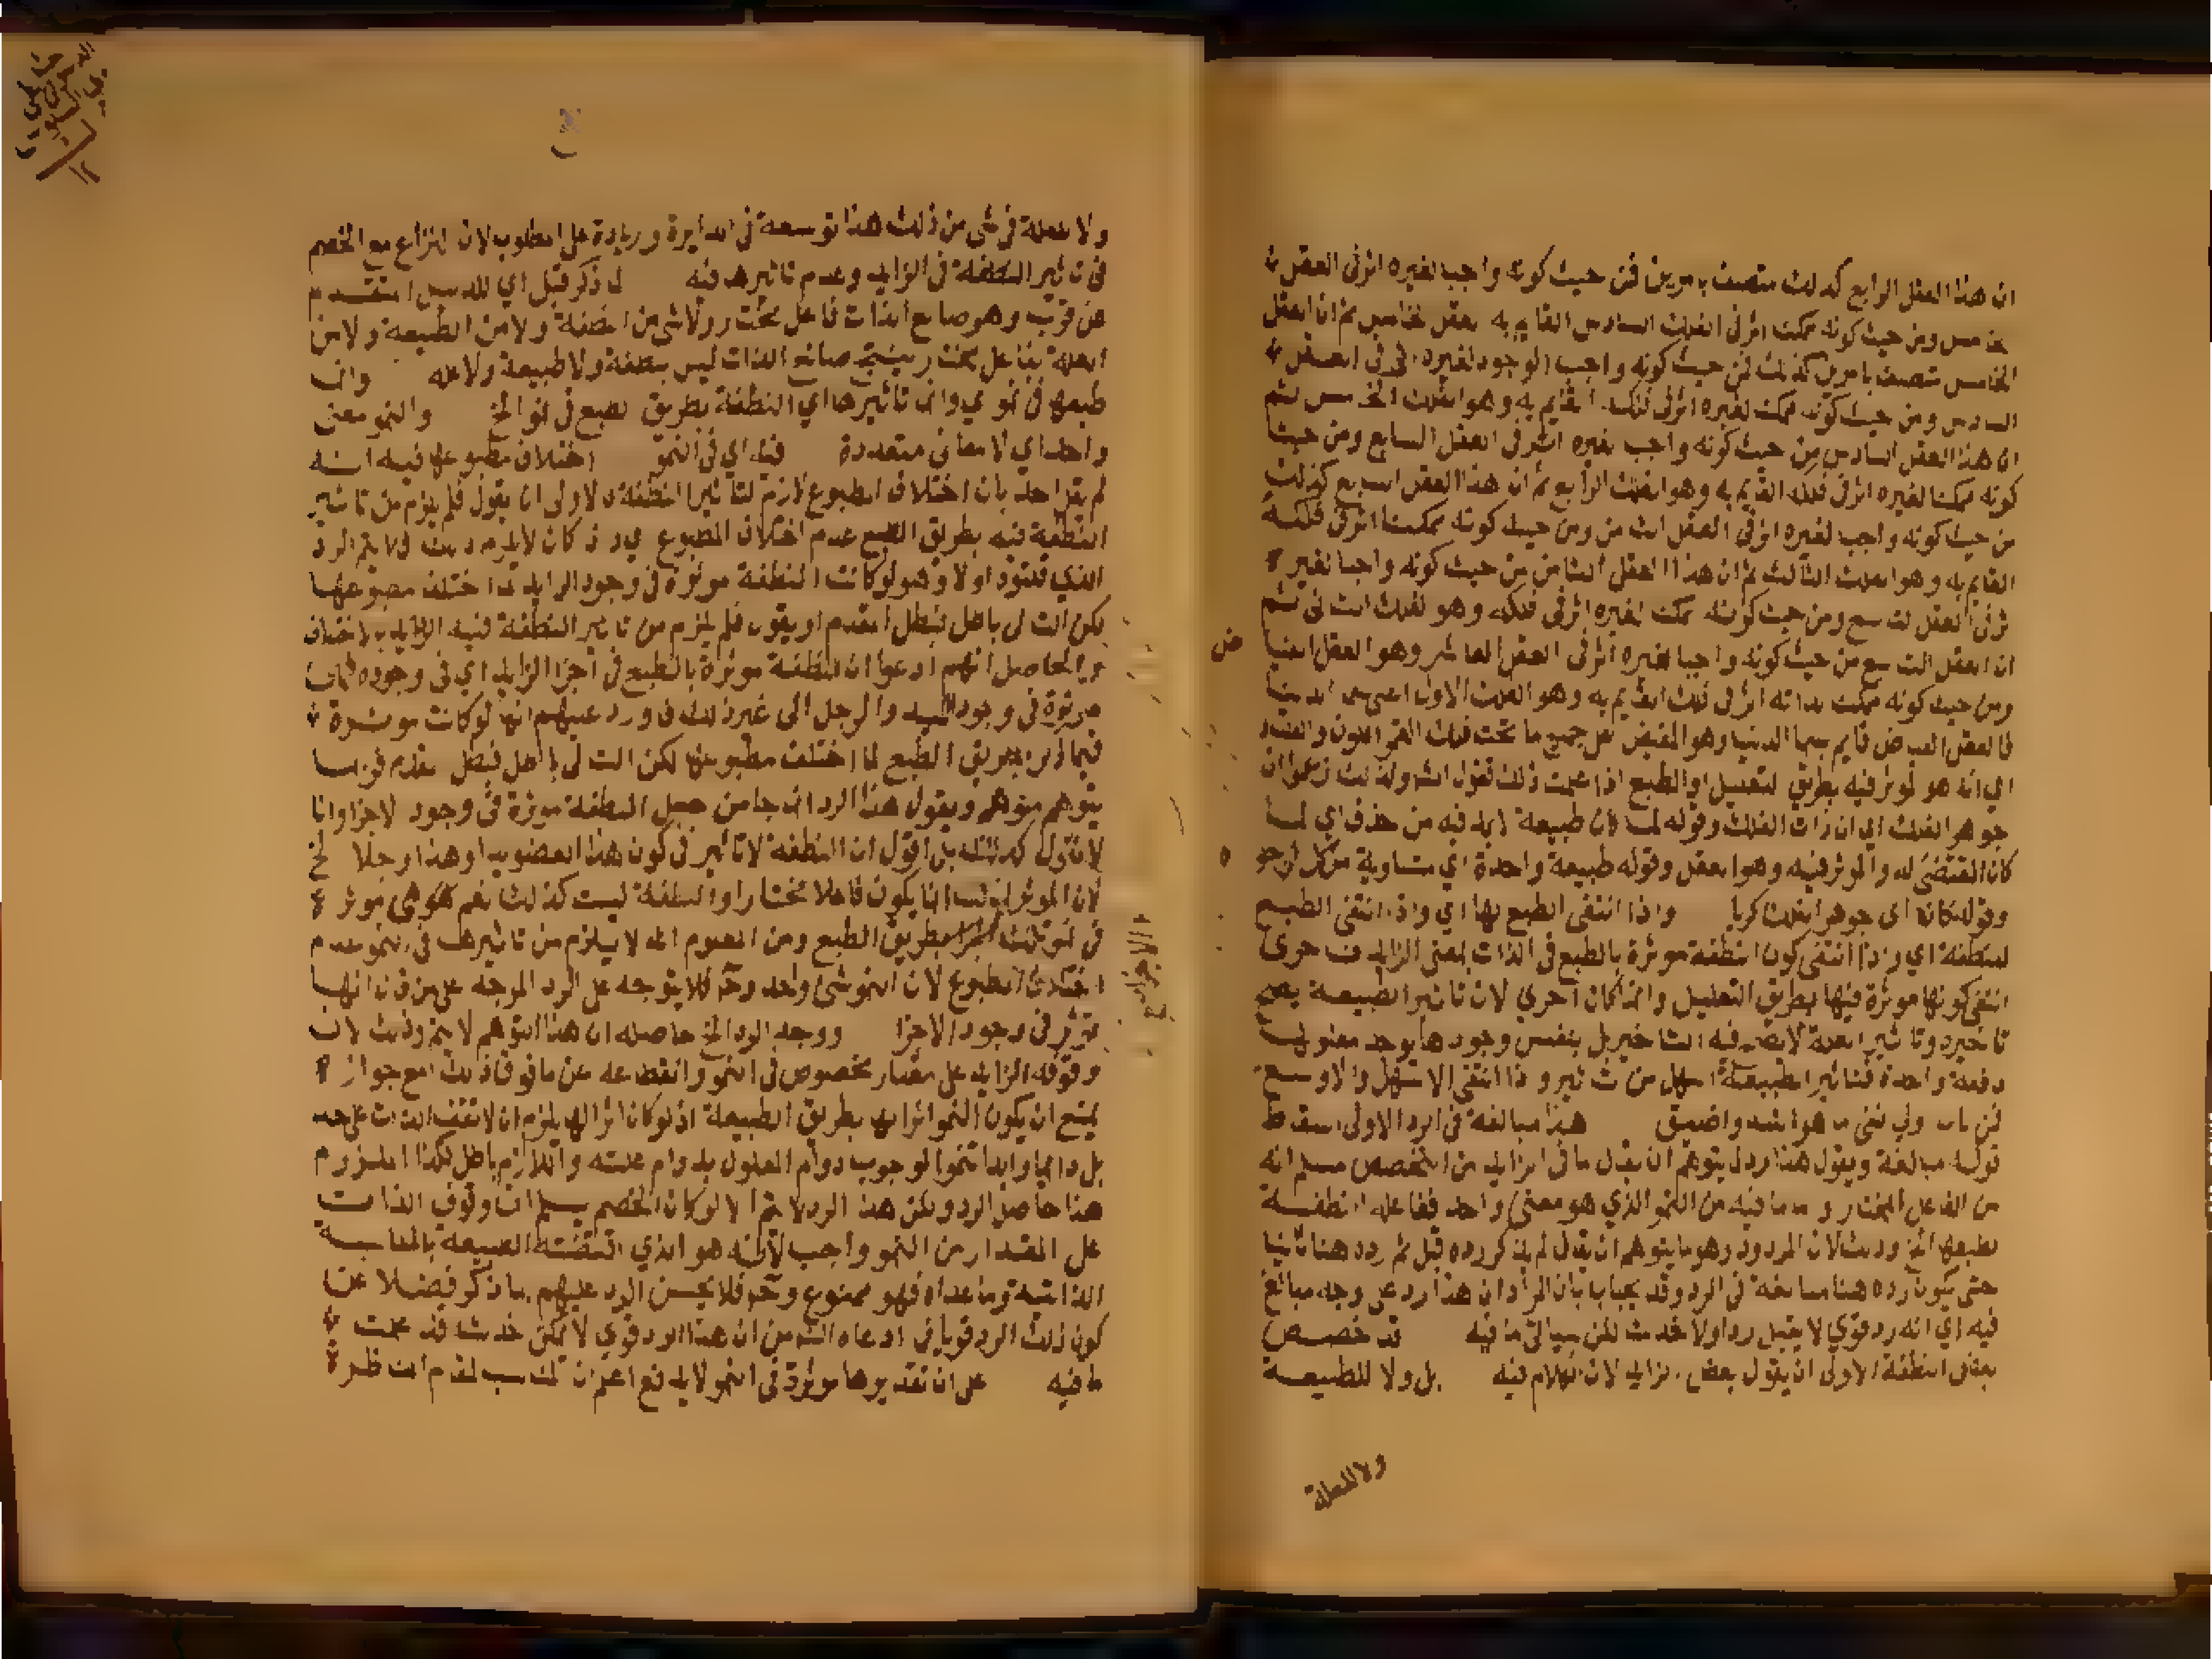 ان هذا العقل الرابع كذلك متصف بامرين فمن حيث كونه واجب لغيره اثر في العقل
الخامس ومن حيث كونه ممكن اثر في الفلك السادس القايم به العقل الخامس ثم ان العقل
الخامس متصف بامرين كذلك فمن حيث كونه واجب الوجود لغيره اثر في العقل
السادس ومن حيث كونه ممكن لغيره اثر في فلك القايم به وهو الفلك الخامس ثم
ان هذا العقل السادس من حيث كونه واجب لغيره اثر في العقل السابع ومن حيث
كونه ممكنا لغيره اثر في فلكه القايم به وهو الفلك الرابع ثم ان هذا العقل السابع كذلك
من حيث كونه واجب لغيره اثر في العقل الثامن ومن حيث كونه ممكنا اثر في فلكه
القايم به وهو الفلك الثالث ثم ان هذا العقل الثامن من حيث كونه واجبا لغيره
اثر في العقل التاسع ومن حيث كونه ممكن لغيره اثر في فلكه وهو الفلك الثاني ثم
ان العقل التاسع من حيث كونه واجبا لغيره اثر في العقل العاشر وهو العقل الفياض
ومن حيث كونه ممكن بذاته اثر في فلك القايم به وهو الفلك الاول اعني سما الدنيا
فالعقل الفياض قايم بسما الدنيا وهو المفيض على جميع ما تحت فلك القمر الكون والفساد
اي انه هو المؤثر فيه بطريق التعليل او الطبع اذا علمت ذلك فقول الشـ ولذلك زعموا ان
جوهر الفلك اي ان ذات الفلك وقوله لما كان طبيعة لابد فيه من حذف اي لما
كان المقتضى له والموثر فيه وهو العقل وقوله طبيعة واحدة اي متساوية من كل وجه
وقوله كان اي جوهر الفلك كريا واذا انتفى الطبع لها اي واذا انتفى الطبع
للنطفة اي واذا انتفى كون النطفة موثرة بالطبع في الذات بمعنى الزايد فاحرى
انتفى كونها موثرة فيها بطريق التعليل وانما كان احري لان تاثير الطبيعة يصح
تاخيره وتاثير العلة لا يصح فيه التاخير بل بنفس وجودها يوجد معلولها
دفعة واحدة فتاثير الطبيعة اسهل من تاثير واذا انتفى الاسهل والاوسع
فمن باب اولى نفي ما هو اشد واضيق هذا مبالغة في الرد الاولى اسقاط
قوله مبالغة ويقول هذا رد لما يتوهم ان يقال ما في الزايد من التخصص مسلم انه
من الفاعل المختار واما ما فيه من النمو الذي هو معنى واحد ففاعله النطفة
بطبعها الخ وذلك لان المردود وهو ما يتوهم ان يقال لم يذكر رده قبل ثم رده هنا ثانيا
حتى يكون رده هنا مبالغة في الرد وقد يجاب بان المراد ان هذا رد على وجه مبالغ
فيه اي انه رد قوي لا يقبل ردا ولا خدش لكن سيأتي ما فيه قد خصص
بعض النطفة الاولى ان يقول بعض الزايد لان الكلام فيه بل ولا للطبيعة
ولا للعلة
ولا للعلة في شي من ذلك هذا توسعة في الدايرة وزيادة على المطلوب لان النزاع مع الخصم
في تاثير النطفة في الزايد وعدم تاثيرها فيه لما ذكر قبل اي للدليل المتقدم
عن قرب وهو صانع الذات فاعل مختار ولا شي من النطفة ولا من الطبيعة ولا من
العلة بفاعل مختار ينتج صانع الذات ليس بنطفة ولا طبيعة ولا علة وان
طبعها في نموي وان تاثيرها اي النطفة بطريق الطبع في نموا الخ والنمو معنى
واحد اي لا معاني متعددة فيه اي في النمو اختلاف مطبوعها فيه انه
لم يقل احد بان اختلاف المطبوع لازم لتاثير النطفة فالاولى ان يقول فلم يلزم من تاثير
النطفة فيه بطريق الطبع عدم اختلاف المطبوع اي واذا كان لا يلزم ذلك فلا يتم الرد
الذي قلتوه اولا وهو لو كانت النطفة موثرة في وجود الزايد لما اختلف مطبوعها
لكن التالي باطل فبطل المقدم او يقول فلم يلزم من تاثير النطفة فيه الزايد بالاختلاف
والحاصل انهم ادعوا ان النطفة موثرة بالطبع في اجزا الزايد اي في وجوده فكانت
موثرة في وجود اليد والرجل الى غير ذلك فاورد عليهم انها لو كانت موثرة
فيما ذكر بطريق الطبع لما اختلف مطبوعها لكن التالي باطل فبطل المقدم فربما
يتوهم متوهم ويقول هذا الرد انما جا من جعل النطفة موثرة في وجود الاجزا وانا
لا اقول كذلك بل اقول ان النطفة لا تاثير في كون هذا العضو يد او هذا رجلا الخ
لان الموثر في ذلك انما يكون فاعلا مختارا والنطفة ليست كذلك نعم هي موثرة
في نمو تلك الاجزا بطريق الطبع ومن المعلوم انه لا يلزم من تاثيرها في النمو عدم
اختلاف المطبوع لان النمو شي واحد وحـ فلا يتوجه على الرد الموجه على من قال انها
توثر في وجود الاجزا ووجه الرد الخ حاصله ان هذا التوهم لا يتم وذلك لان
وقوف الزايد على مقدار مخصوص في النمو وانقطاعه عن ما فوق ذلك مع جوازه
يمنع ان يكون النمو اثرا لها بطريق الطبيعة اذ لو كان اثرا لها يلزم ان لا تقف الذات على حد
بل دايما وابدا تنموا لوجوب دوام المعلول بدوام علته واللازم باطل فكذا الملزوم
هذا حاصل الرد ولكن هذا الرد لا يتم الا لو كان الخصم يسلم ان وقوف الذات
على المقدار من النمو واجب لانه هو الذي اقتضته الطبيعة بالمناسبة
الذاتية وما عداه فهو ممنوع وحـ فلا يحسن الرد عليهم بما ذكر فضلا عن
كون ذلك الرد قويا في ادعاه الشـ من ان هذا الرد قوي لا يمكن خدشه قد علمت
ما فيه على ان تقديرها موثرة في النمو لا يدفع اعلم ان المناسب لمقام المناظرة